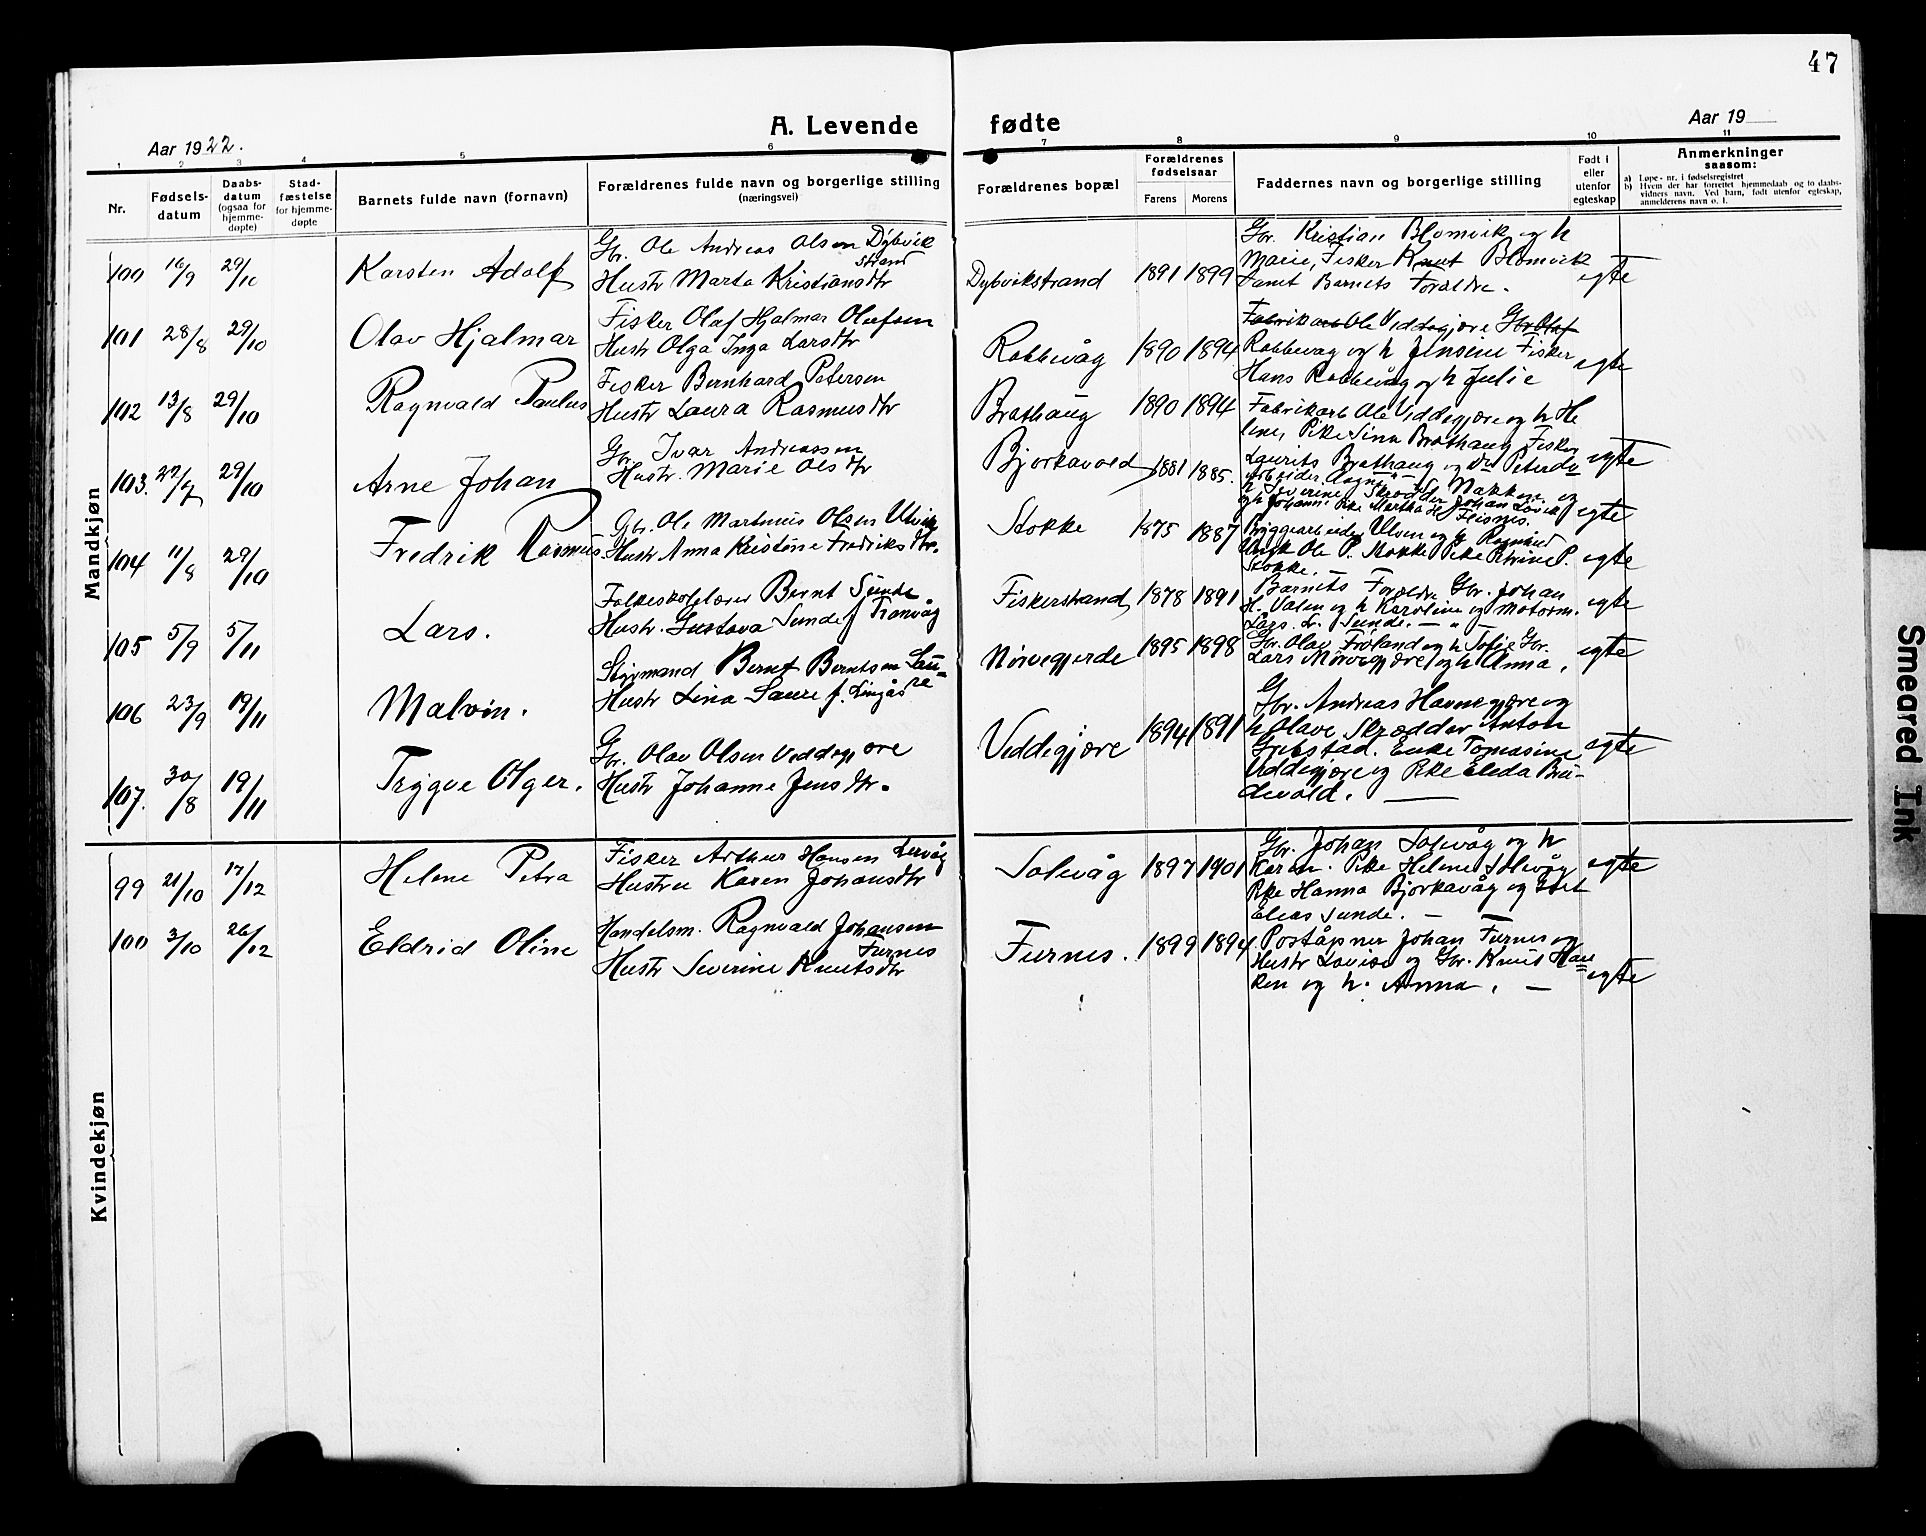 47
A. Levende fødte
Aar 1922.
Aar 19
1 2 3 4 5 6 7 8 9 10 11
Nr.
Fødsels-
datum
Daabs-
datum
(ogsaa for
hjemme-
døpte)
Stad-
fæstelse
for hjemme-
døpte
Barnets fulde navn (fornavn)
Forældrenes fulde navn og borgerlige stilling
(næringsvei)
Forældrenes bopæl
Forældrenes
fødselsaar
Farens Morens
Faddernes navn og borgerlige stilling
Født i
eller
utenfor
egteskap
Anmerkninger
saasom:
a) Løpe-nr. i fødselsregistret
b) Hvem der har forrettet hjemmedaab og to daabs-
vidners navn. Ved barn, født utenfor egteskap,
anmelderens navn o. l.
Mandkjøn
100 16/9 29/10 Karsten Adolf
Gbr. Ole Andreas Olsen Dybvik
strand
Hustr Marta Kristiansdtr
Dybvikstrand 1891 1899
Gbr. Kristian Blomvik og h
Marie, Fisker Knut Blomvik
samt Barnets Forældre.
egte
101 28/8 29/10 Olav Hjalmar
Fisker Olaf Hjalmar Olafsen
Hustr Olga Inga Larsdtr
Rabbevåg 1890 1894
Fabrikarb Ole Viddegjøre Gbr Olaf
Rabbevag og h Jensine Fisker
Hans Rabbevåg og h Julie
egte
102 13/8 29/10 Ragnvald Paulus
Fisker Bernhard Petersen
Hustr Laura Rasmusdtr
Brathaug 1890 1894
Fabrikarb Ole Viddegjøre og h He
lene, Pike Sina Brathaug Fisker
Laurits Brathaug og
egte
103. 27/7 29/10 Arne Johan
Gbr. Ivar Andreassen
Hustr. Marie Olsdtr
Bjorkavold 1881 1885.
Arbeider
h Severine Skrædder Johan
og h Johanne Pike Martha Flisnes.
egte
104 11/8 29/10 Fredrik Rasmus
Gbr. Ole Martinus Olsen
Hustr Anna Kristine Fredriksdtr.
Stokke 1875 1887
Bryggearbeider Ulven og h Ragnhild
Ungk Ole P. Stokke Pike Petrine P.
Stokke.
egte
105 5/9 5/11 Lars.
Folkeskolelærer Bernt Sunde
Hustr. Gustava Sunde f Tranvåg
Fiskerstrand 1878 1891
Barnets Forældre Gbr. Johan
H. Valen og h Karoline og Motorm.
Lars L. Sunde.
egte
106 23/9 19/11 Malvin.
Styrmand Bernt Berntsen Sau=
re
Hustr Lina Saure f. Lingås
Nørvegjerde 1895 1898
Gbr. Olav Frøland og h Sofie Gbr.
Lars Nørvegjære og h Anna.
egte
107. 30/8 19/11 Trygve Olger.
Gbr. Olav Olsen Veddegjøre
Hustr Johanne Jensdtr.
Veddegjøre 1894 1891
Gbr. Andreas Havnegjøre og
h Olave Skrædder Anton
Grebstad. Enke Tomasine
Veddegjøre og Pike Elida Brei-
devald.
egte
Kvindekjøn
99 21/10 17/12 Helene Petra
Fisker Arthur Hansen Lervåg
Hustru Karen Johansdtr
Solevåg 1897 1901
Gbr. Johan Solevåg og h
Karen. Pike Helene Solevåg
Pike Hanna Bjorkavåg og
Elias Sunde.
egte
100 3/10 26/12 Eldrid Oline
Handelsm. Ragnvald Johansen
Furnes
Hustr Severine Knutsdtr
Furnes. 1899 1894.
Poståpner Johan Furnes og
Hustr Lovise og Gbr. Knut Hau
ken og h. Anna.
egte
Smeared Ink